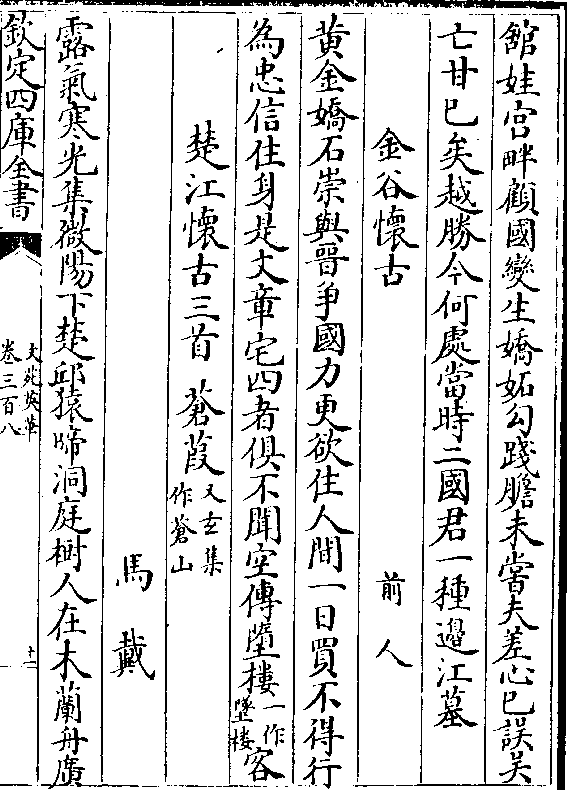 館娃宮畔顧國變生嬌妬勾踐膽未嘗夫差心已誤吳
亡甘已矣越勝今何處當時二國君一種邉江墓
金谷懷古
前人
黃金嬌石崇與晉爭國力更欲住人間一日買不得行
為忠信住身是文章宅四者俱不聞空傳墮樓一作墜樓客
楚江懷古三首
蒼葭又玄集作蒼山
馬戴
露氣寒光集微陽下楚邱猿啼洞庭樹人在木蘭舟廣
欽定四庫全書
文苑英華
卷三百八
十二